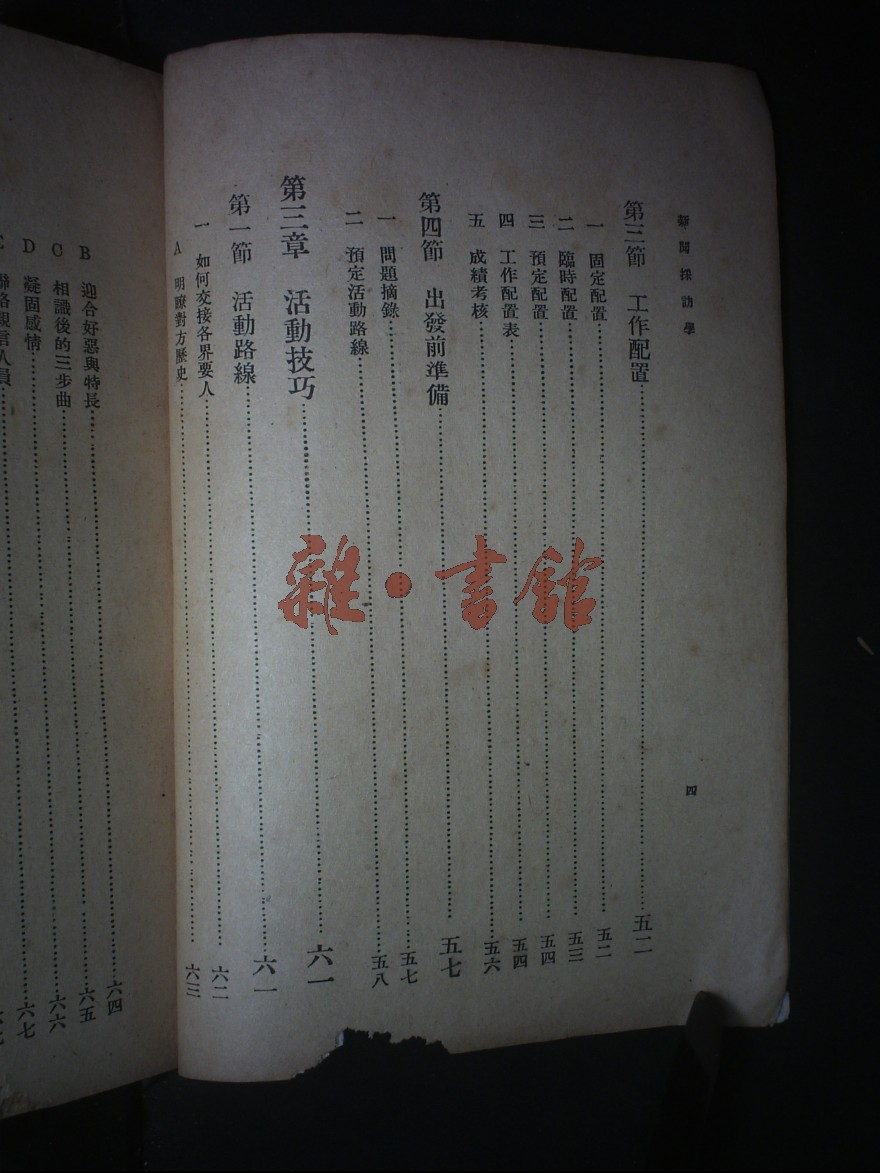 新聞採訪學
四
第三節 工作配置……五二
一 固定配置……五二
二 臨時配置……五三
三 預定配置……五四
四 工作配置表……五四
五 成績考核……五六
第四節 出發前準備……五七
一 問題摘錄……五七
二 預定活動路線……五八
第三章 活動技巧……六一
第一節 活動路線……六一
一 如何交接各界要人……六二
A 明瞭對方歷史……六三
B 迎合好惡與特長……六四
C 相識後的三步曲……六五
D 凝固感情……六六
聯絡親信人員……六七
雜·書館